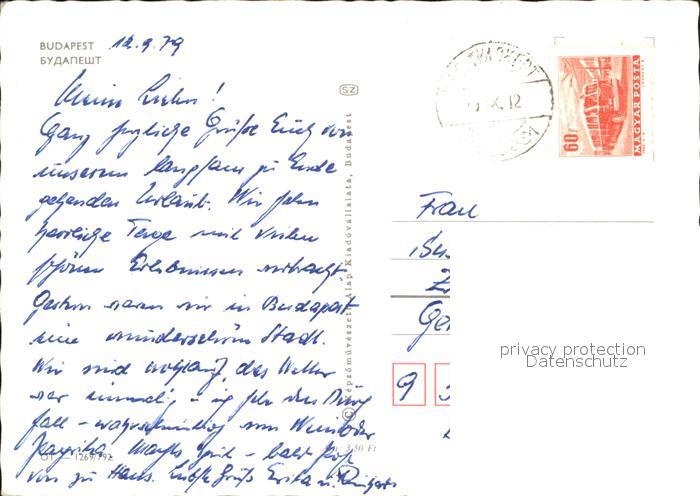 BUDAPEST 12.9.79
БУДАПЕШТ
Meine Lieben!
Ganz herzliche Grüße Euch von
unserem langsam zu Ende
gehenden Urlaub. Wir haben
herrliche Tage mit vielen
schönen Erlebnissen verbracht.
Gestern waren wir in Budapest
eine wunderschöne Stadt.
Wir sind wohlauf, das Wetter
war einmalig - ich habe den Durch
fall - wahrscheinlich vom Wein oder
Paprika. Macht's gut - bald
von zu Haus. Liebe Grüße Erika u.
SZ
Képzőművészeti Alap Kiadóvállalata, Budapest
1269/792
3,50 Ft
X. 12
60f
MAGYAR POSTA
Frau
Ge
9
privacy protection
Datenschutz